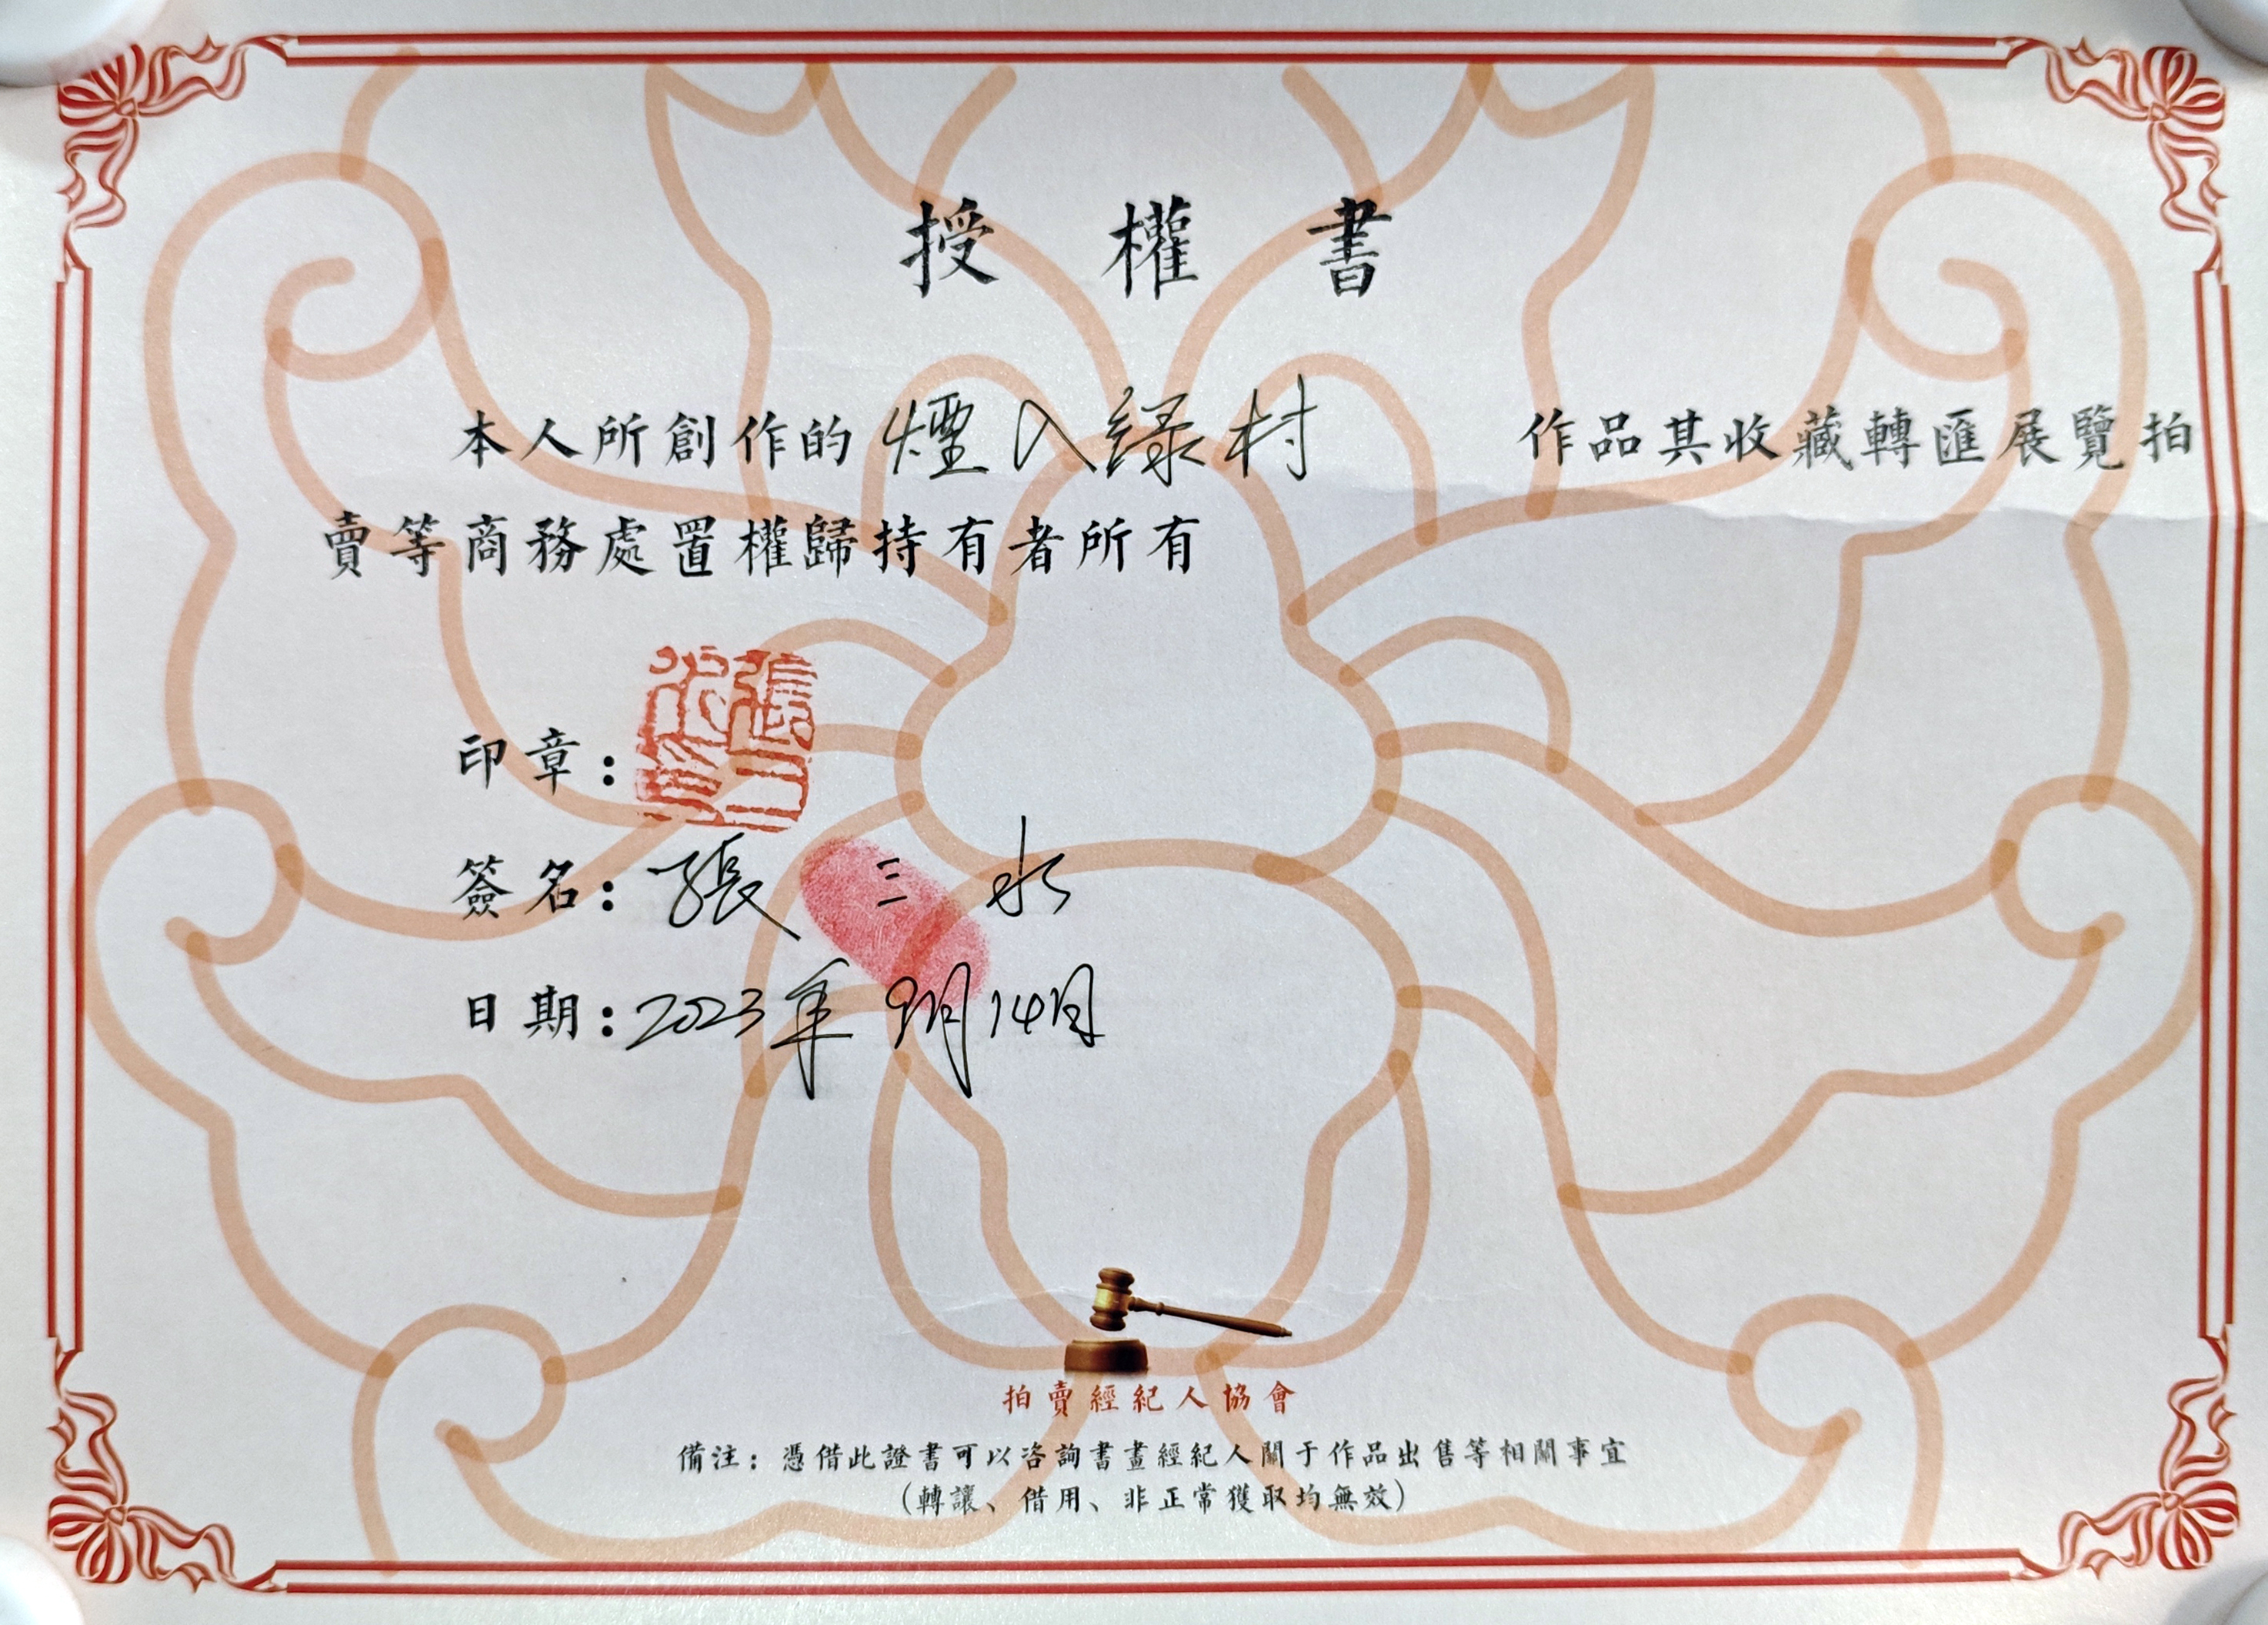 授權書
本人所創作的 煙入綠村 作品其收藏轉匯展覽拍
賣等商務處置權歸持有者所有
印章：
簽名：張三水
日期：2023年9月14日
拍賣經紀人協會
備注：憑借此證書可以咨詢書畫經紀人關于作品出售等相關事宜
（轉讓、借用、非正常獲取均無效）